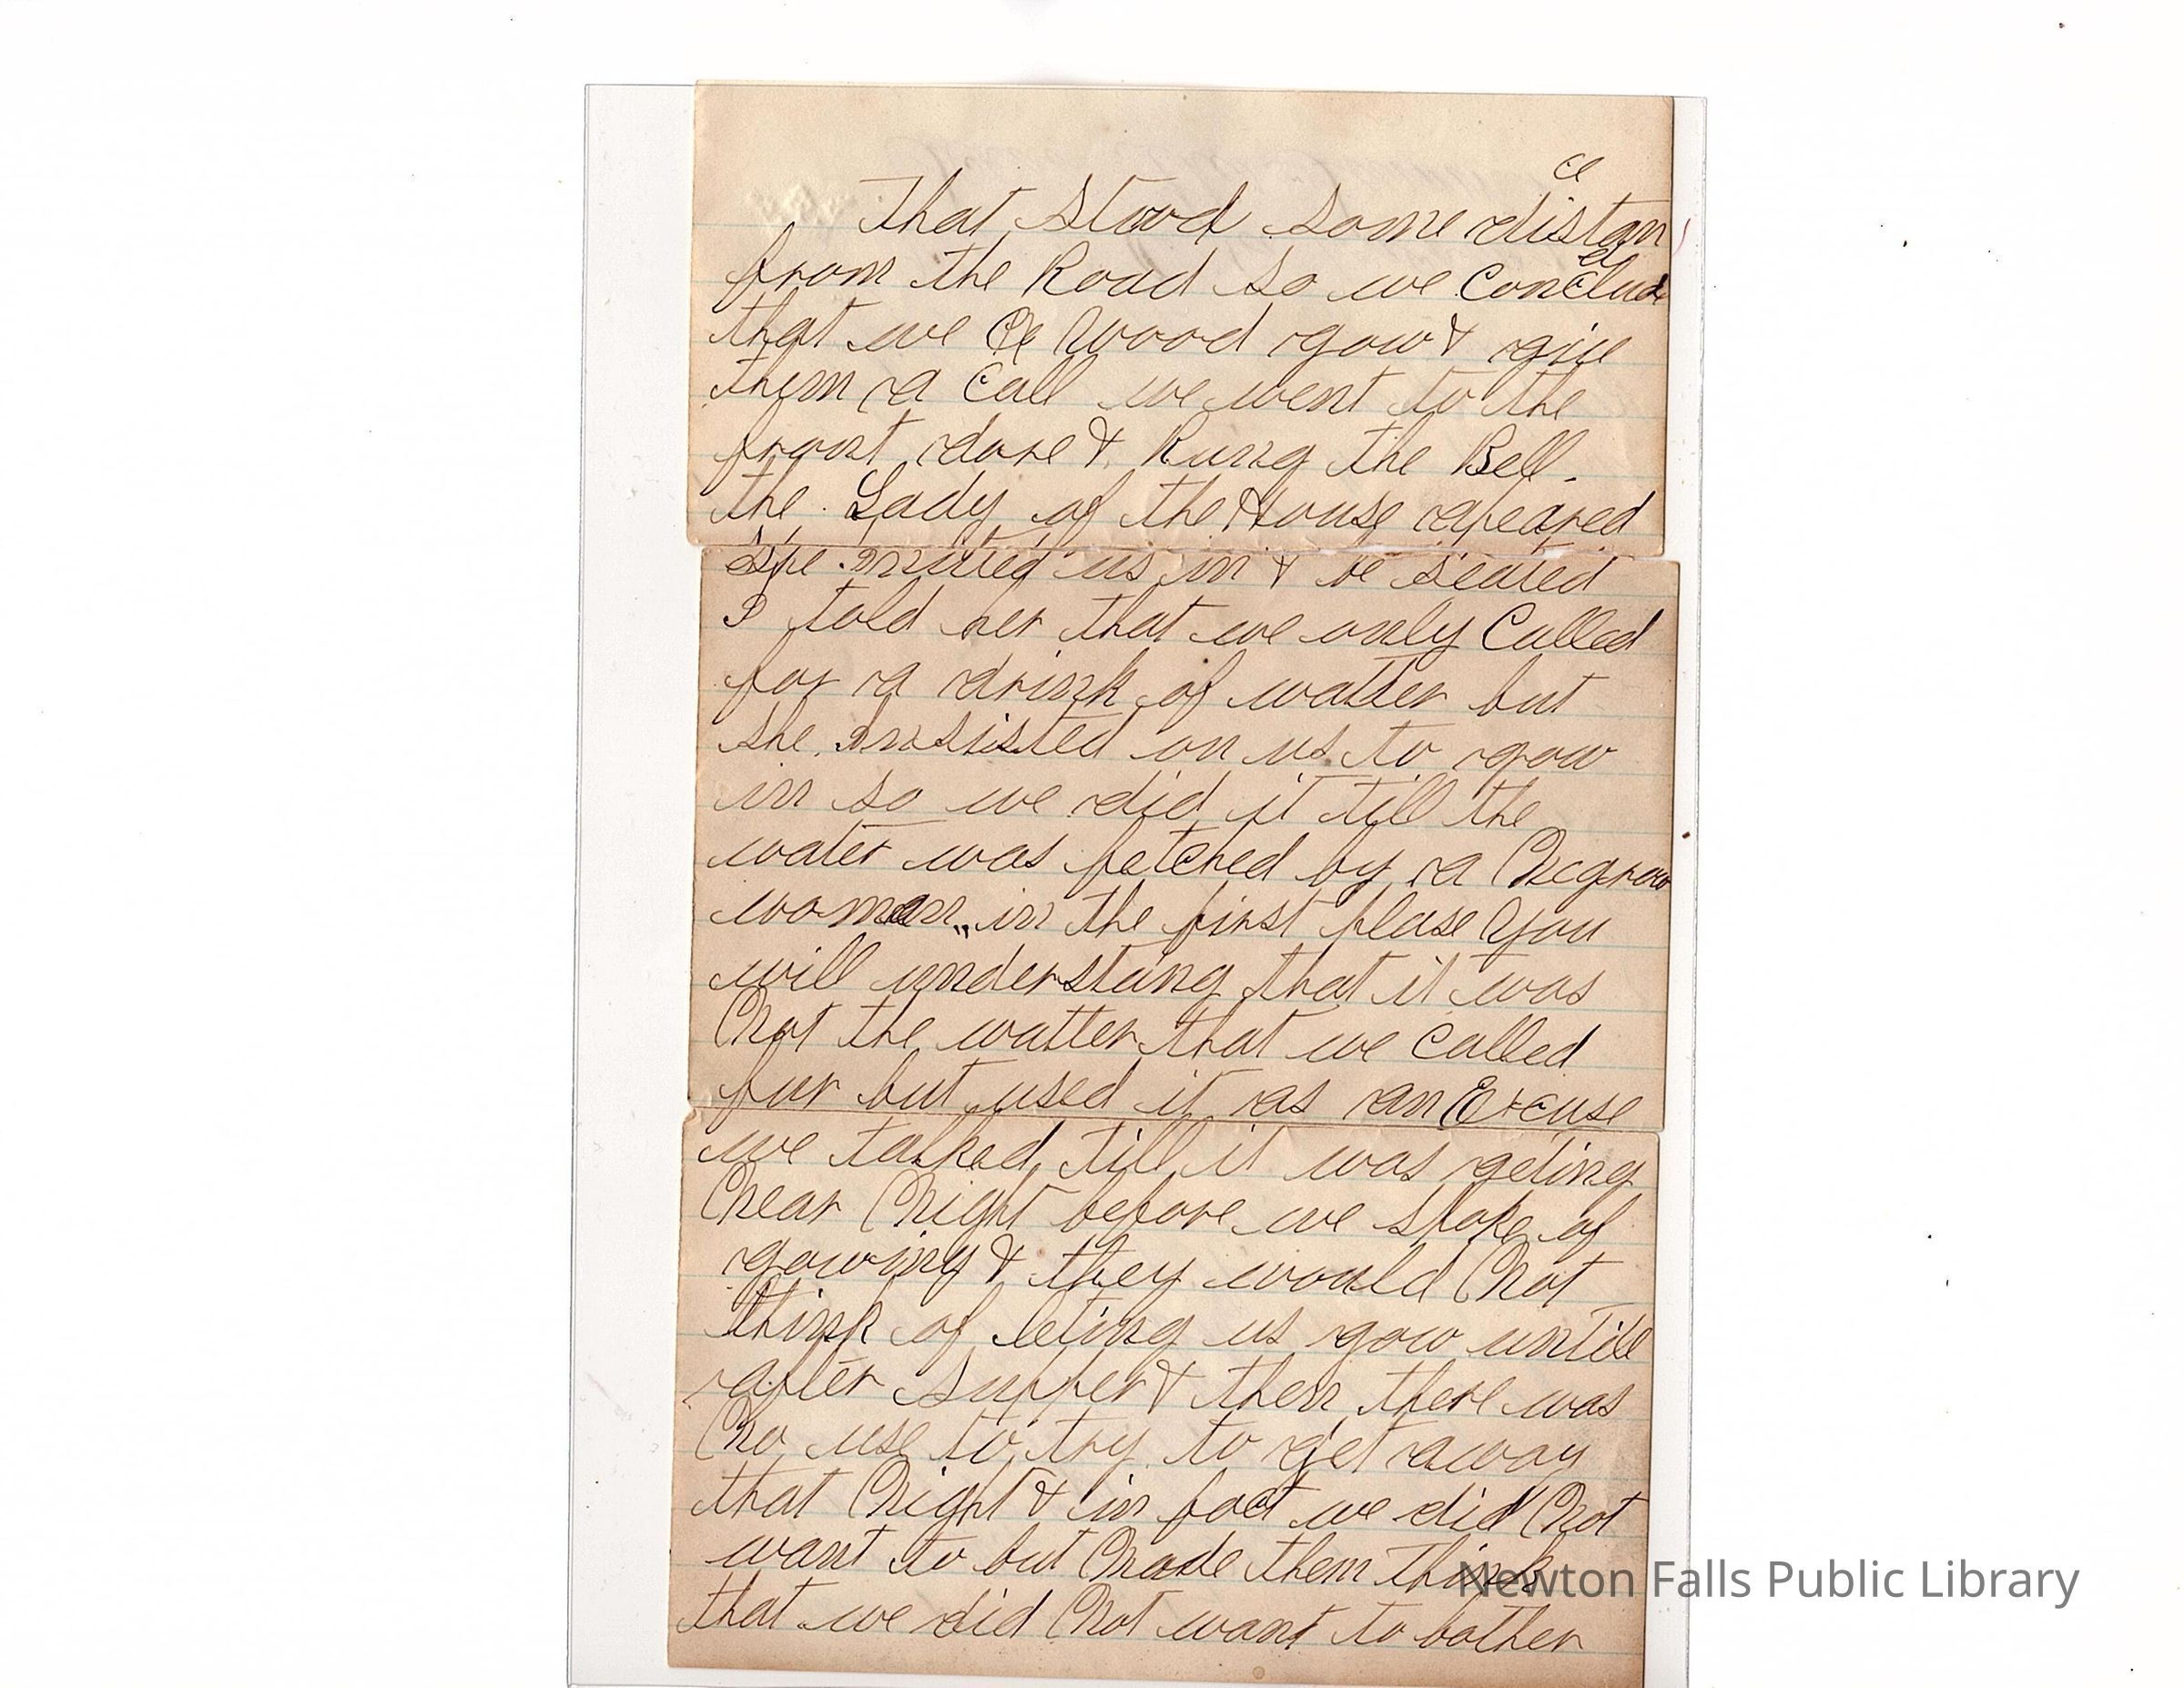 That Stood some distance
from the Road so we Conclude
that we Wood gow & give
them a Call we went to the
front dore & Rung the Bell.
the Lady of the House apeared
She Invited us in & be Seated
I told her that we only Called
for a drink of watter but
she Insisted on us to gow
in so we did it till the
water was fetched by a Negrow
woman,, in the first plase You
will understang that it was
Not the watter that we Called
fur but used it as an Excuse
we talked till it was geting
Near Night before we spoke of
gowing & they would Not
think of leting us gow untill
after Supper & then there was
No use to try to get away
that Night & in fact we did Not
want to but Made them Think
that we did Not want to bother
Newton Falls Public Library